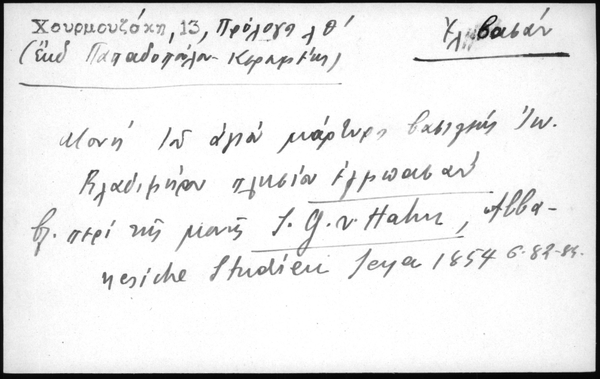 Χουρμουζάκη, 13, Πρόλογος λθ'
Ἐλβασάν
(Ἐκδ Παπαδοπούλου-Κεραμέως)
Μονή τοῦ ἁγίου μάρτυρος βασιλέως Ἰω.
Βλαδιμήρου πλησίον Ἐλμπασάν
βλ. περί τῆς μονῆς J. G. v. Hahn, Alba-
nesiche Studien Jena 1854 σ. 82-83.